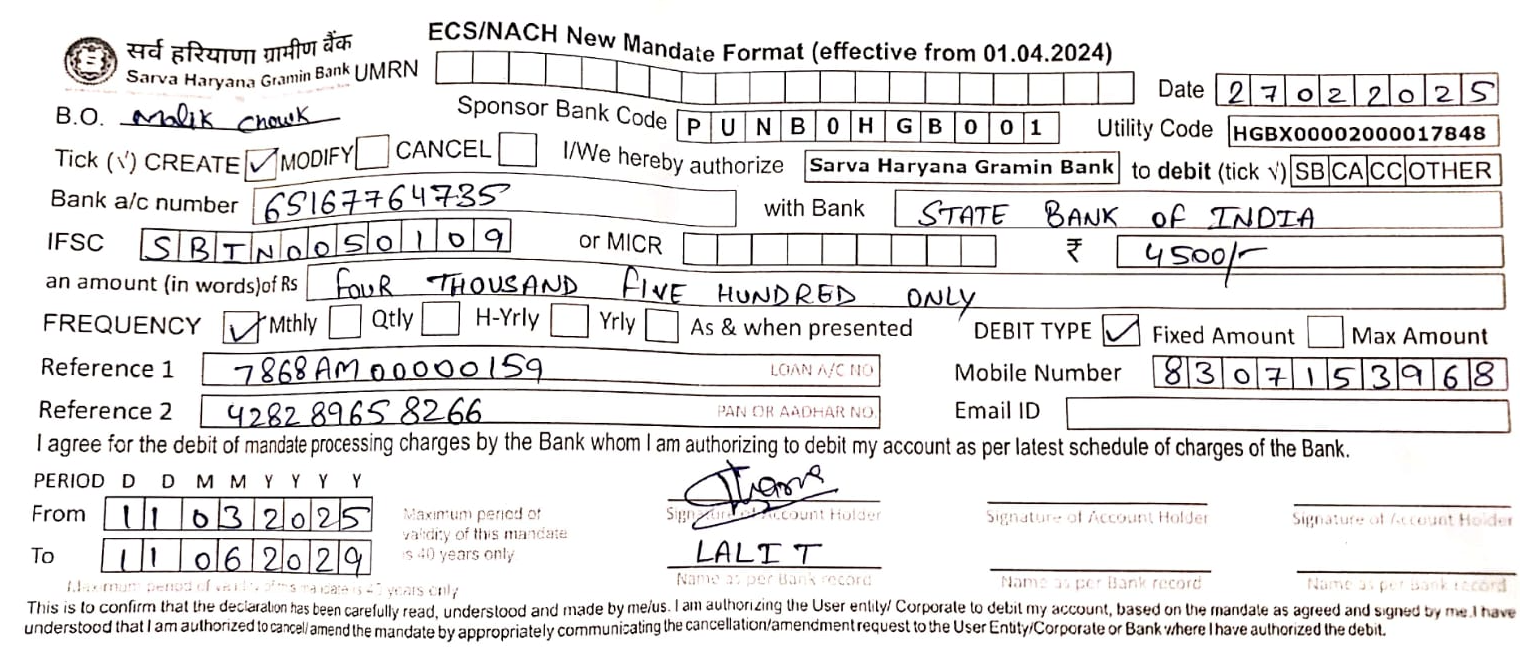 ECS/NACH New Mandate Format (effective from 01.04.2024)
सर्व हरियाणा ग्रामीण बैंक
Sarva Haryana Gramin Bank UMRN
Date 27022025
B.O. Malik Chowk Sponsor Bank Code PUNB0HGB001 Utility Code HGBX00002000017848
Tick (√) CREATE ✓ MODIFY CANCEL I/We hereby authorize Sarva Haryana Gramin Bank to debit (tick √) SB CA CC OTHER
Bank a/c number 65167764735 with Bank STATE BANK OF INDIA
IFSC SBIN0050109 or MICR ₹ 4500/-
an amount (in words)of Rs FOUR THOUSAND FIVE HUNDRED ONLY
FREQUENCY ✓ Mthly Qtly H-Yrly Yrly As & when presented DEBIT TYPE ✓ Fixed Amount Max Amount
Reference 1 7868AM00000159 LOAN A/C NO Mobile Number 8307153968
Reference 2 428289658266 PAN OR AADHAR NO. Email ID
I agree for the debit of mandate processing charges by the Bank whom I am authorizing to debit my account as per latest schedule of charges of the Bank.
PERIOD D D M M Y Y Y Y
From 11032025
To 11062029
Maximum period of
validity of this mandate
is 40 years only
Signature of Account Holder Signature of Account Holder Signature of Account Holder
LALIT
Name as per Bank record Name as per Bank record Name as per Bank record
Maximum period of validity of this mandate is 40 years only
This is to confirm that the declaration has been carefully read, understood and made by me/us. I am authorizing the User entity/ Corporate to debit my account, based on the mandate as agreed and signed by me.I have
understood that I am authorized to cancel/amend the mandate by appropriately communicating the cancellation/amendment request to the User Entity/Corporate or Bank where I have authorized the debit.